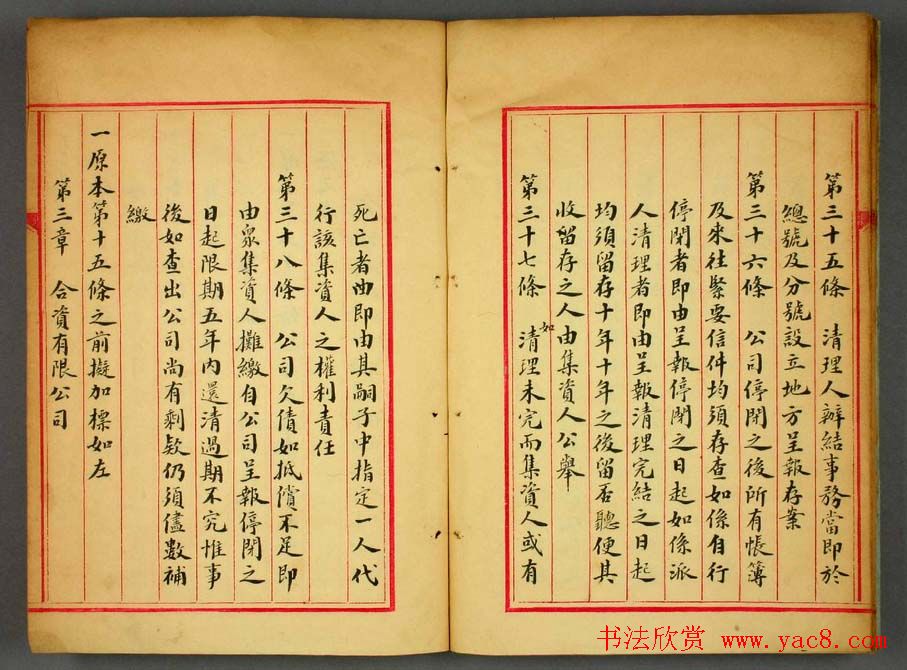 第三十五條　清理人辦結事務當即於
總號及分號設立地方呈報存案
第三十六條　公司停閉之後所有帳簿
及來往緊要信件均須存查如係自行
停閉者即由呈報停閉之日起如係派
人清理者即由呈報清理完結之日起
均須留存十年十年之後留否聽便其
收留存之人由集資人公舉
第三十七條　如清理未完而集資人或有
死亡者由即由其嗣子中指定一人代
行該集資人之權利責任
第三十八條　公司欠債如抵償不足即
由眾集資人攤繳自公司呈報停閉之
日起限期五年內還清過期不完惟事
後如查出公司尚有剩欵仍須儘數補
繳
一原本第十五條之前擬加標如左
第三章　合資有限公司
书法欣赏 www.yac8.com